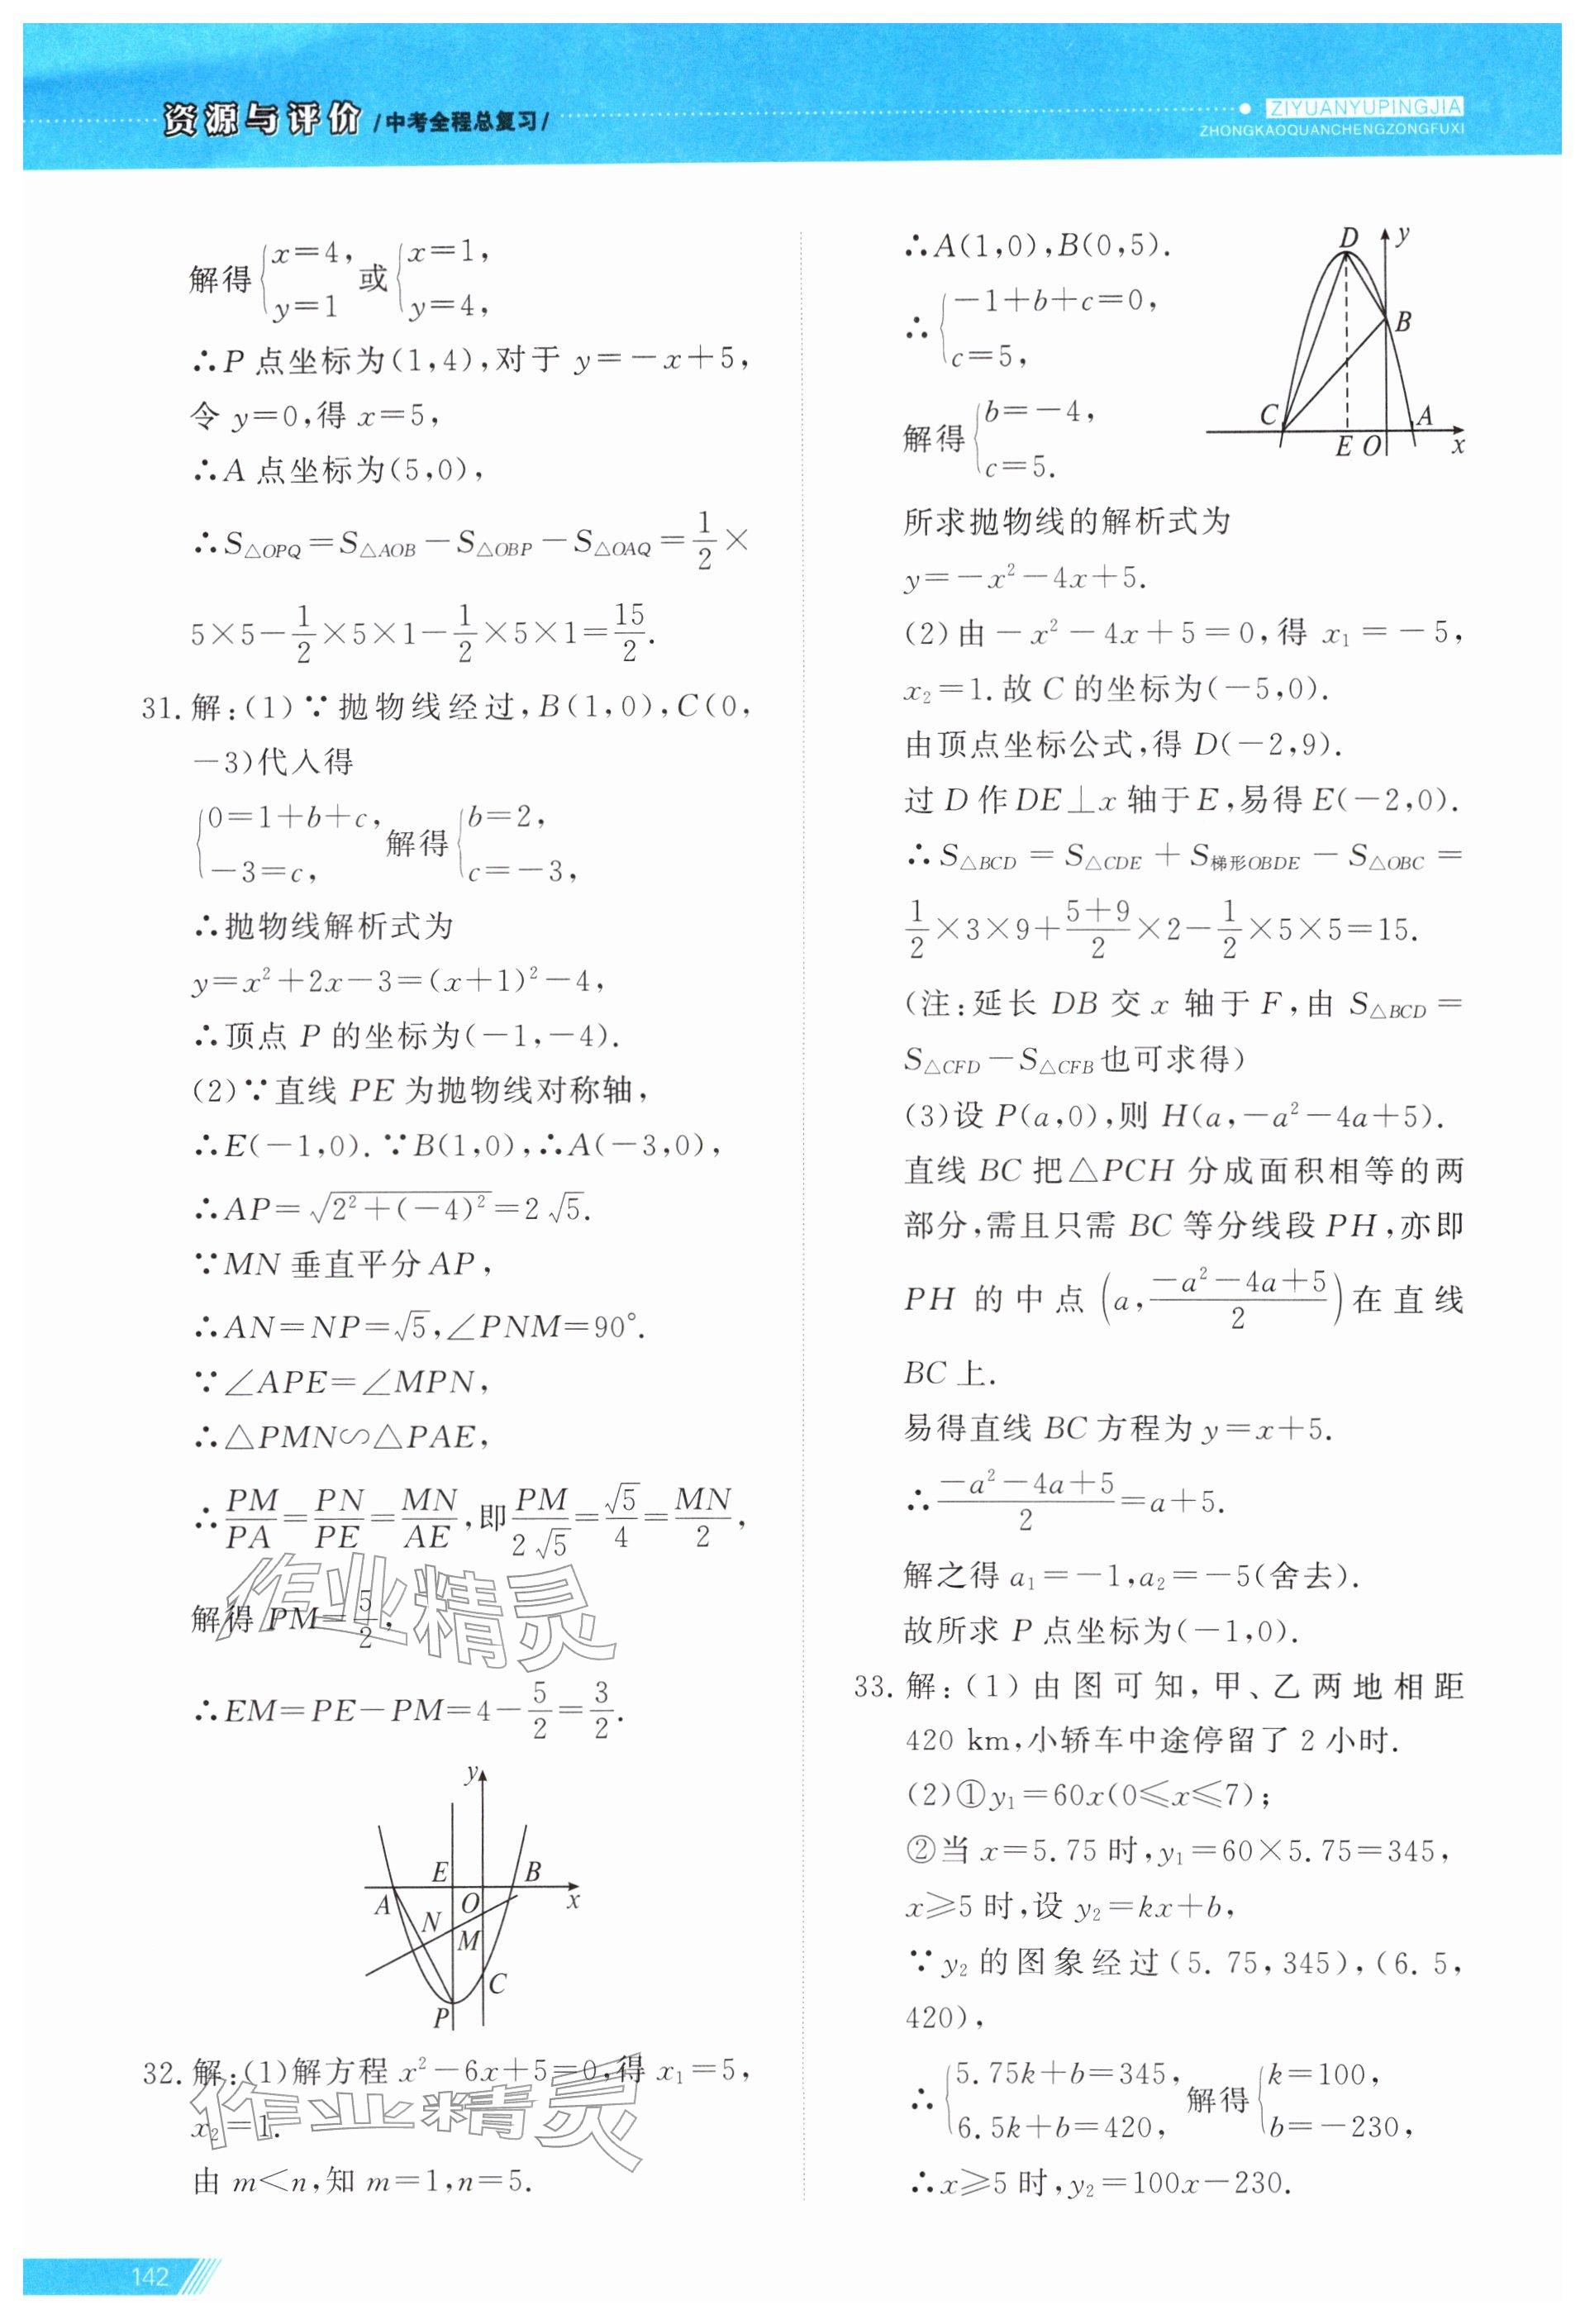 资源与评价 /中考全程总复习/
ZIYUANYUPINGJIA
ZHONGKAOQUANCHENGZONGFUXI
解得{x=4, y=1 或{x=1, y=4,
∴P 点坐标为(1,4),对于 y=-x+5,
令 y=0,得 x=5,
∴A 点坐标为(5,0),
∴S△OPQ=S△AOB-S△OBP-S△OAQ=1/2×
5×5-1/2×5×1-1/2×5×1=15/2.
31. 解:(1)∵抛物线经过,B(1,0),C(0,
-3)代入得
{0=1+b+c, -3=c, 解得{b=2, c=-3,
∴抛物线解析式为
y=x²+2x-3=(x+1)²-4,
∴顶点 P 的坐标为(-1,-4).
(2)∵直线 PE 为抛物线对称轴,
∴E(-1,0).∵B(1,0),∴A(-3,0),
∴AP=√(2²+(-4)²)=2√5.
∵MN 垂直平分 AP,
∴AN=NP=√5,∠PNM=90°.
∵∠APE=∠MPN,
∴△PMN∽△PAE,
∴PM/PA=PN/PE=MN/AE,即PM/2√5=√5/4=MN/2,
解得 PM=5/2,
∴EM=PE-PM=4-5/2=3/2.
y
E
B
A
O
x
N
M
C
P
32. 解:(1)解方程 x²-6x+5=0,得 x₁=5,
x₂=1.
由 m<n,知 m=1,n=5.
∴A(1,0),B(0,5).
∴{-1+b+c=0, c=5,
解得{b=-4, c=5.
D
y
B
C
A
E
O
x
所求抛物线的解析式为
y=-x²-4x+5.
(2)由-x²-4x+5=0,得 x₁=-5,
x₂=1.故 C 的坐标为(-5,0).
由顶点坐标公式,得 D(-2,9).
过 D 作 DE⊥x 轴于 E,易得 E(-2,0).
∴S△BCD=S△CDE+S梯形OBDE-S△OBC=
1/2×3×9+(5+9)/2×2-1/2×5×5=15.
(注:延长 DB 交 x 轴于 F,由 S△BCD=
S△CFD-S△CFB也可求得)
(3)设 P(a,0),则 H(a,-a²-4a+5).
直线 BC 把△PCH 分成面积相等的两
部分,需且只需 BC 等分线段 PH,亦即
PH 的中点(a,(-a²-4a+5)/2)在直线
BC 上.
易得直线 BC 方程为 y=x+5.
∴(-a²-4a+5)/2=a+5.
解之得 a₁=-1,a₂=-5(舍去).
故所求 P 点坐标为(-1,0).
33. 解:(1)由图可知,甲、乙两地相距
420 km,小轿车中途停留了 2 小时.
(2)①y₁=60x(0≤x≤7);
②当 x=5.75 时,y₁=60×5.75=345,
x≥5 时,设 y₂=kx+b,
∵y₂ 的图象经过(5.75,345),(6.5,
420),
∴{5.75k+b=345, 6.5k+b=420, 解得{k=100, b=-230,
∴x≥5 时,y₂=100x-230.
142
作业精灵
作业精灵